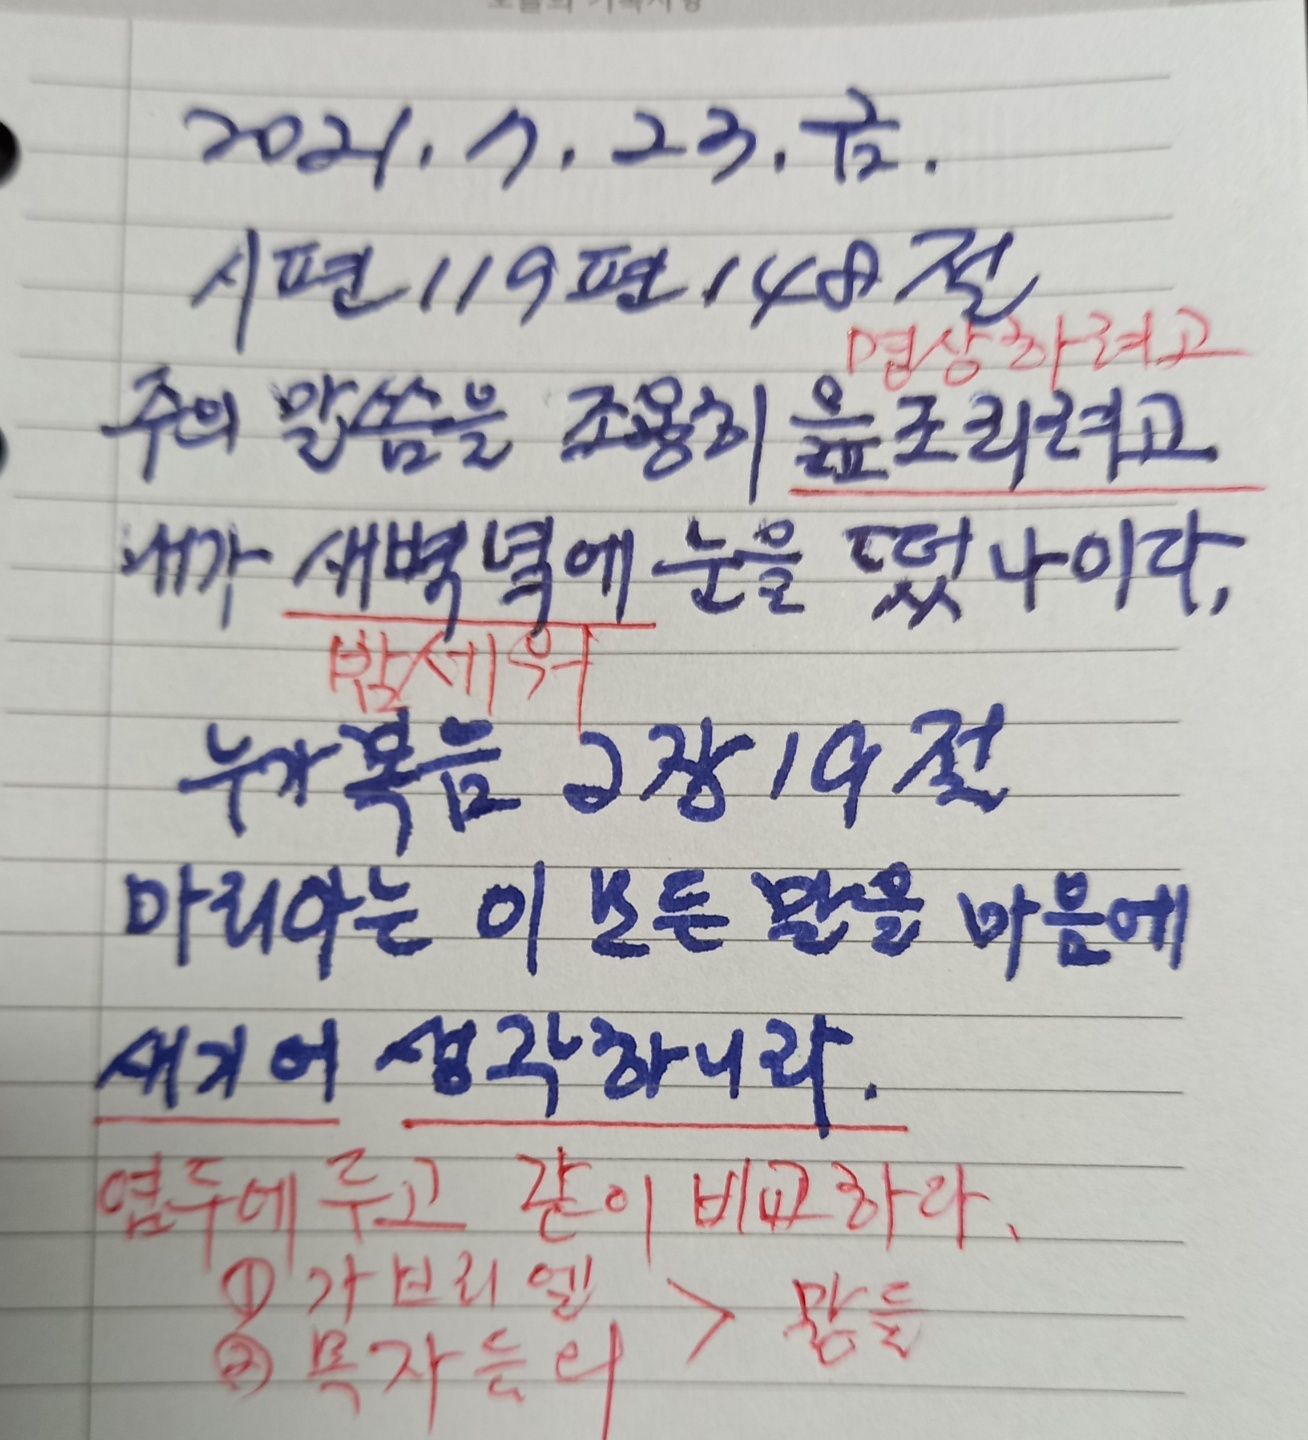 2021. 7. 23. 금.
시편 119편 148절
명상하려고
주의 말씀을 조용히 읊조리려고
내가 새벽녘에 눈을 떴나이다,
밤세워
누가복음 2장 19절
마리아는 이 모든 말을 마음에
새기어 생각하니라.
염두에 두고 같이 비교하라.
① 가브리엘 > 말들
② 목자들의